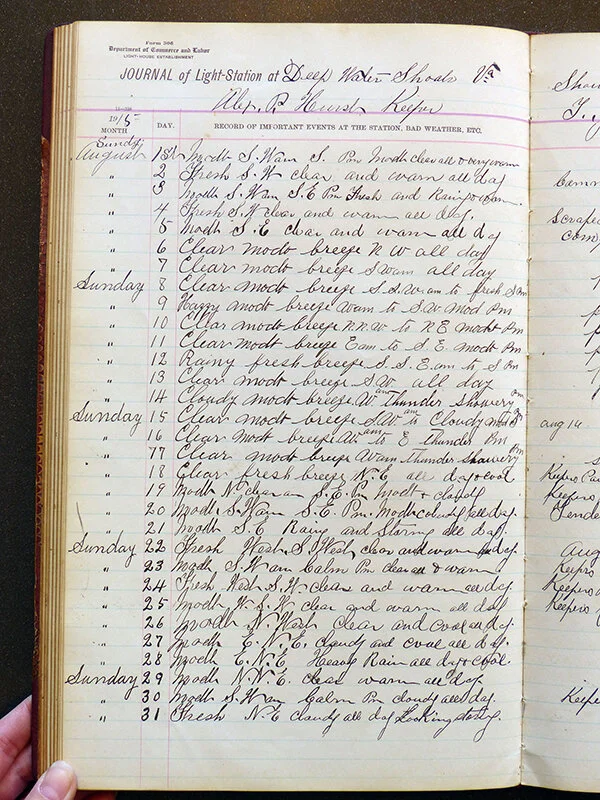 Form 306
Department of Commerce and Labor
LIGHT-HOUSE ESTABLISHMENT
JOURNAL of Light-Station at Deep Water Shoals Va
Alex. P. Hurst, Keeper
1915
MONTH DAY. RECORD OF IMPORTANT EVENTS AT THE STATION, BAD WEATHER, ETC.
Sundy
August 1st Modth S. W am S. Pm Modth clear all & very warm
" 2 Fresh S. W clear and warm all day
" 3 Modth S. W am S. E Pm Fresh and Rainy & warm
" 4 Fresh S. W clear and warm all day.
" 5 Modth S. E clear and warm all day
" 6 Clear modt breeze N W all day
" 7 Clear modt breeze S W am all day
Sunday 8 Clear modt breeze S.S.W. am to fresh S Pm
" 9 Hazzy modt breeze W am to S.W. mod Pm
" 10 Clear modt breeze N.N.W to N E modt Pm
" 11 Clear modt breeze E am to S. E. modt Pm
" 12 Rainy fresh breeze S. S. E. am to S Pm
" 13 Clear modt breeze S W all day
" 14 Cloudy modt breeze W am thunder showery Pm
Sunday 15 Clear modt breeze S.W am to Cloudy mod S Pm
" 16 Clear modt breeze W am to E thunder Pm
" 17 Clear modt breeze W am thunder showery Pm
" 18 Clear fresh breeze N. E all day & cool
" 19 Modth N. clear am S. E. Pm Modt & cloudy
" 20 Modth S. W am S. E. Pm. Modth cloudy all day.
" 21 Modth S. E Rainy and Stormy all day.
Sunday 22 Fresh West S. West clear and warm all day.
" 23 Modth S. W am Calm Pm clear all & warm
" 24 Fresh West S. W. clear and warm all day.
" 25 Modth W. S. W clear and warm all day
" 26 Modth N. West clear and cool all day.
" 27 Modth E. N. E. cloudy and cool all day.
" 28 Modth E. N. E Heavy Rain all day & cool.
Sunday 29 Modth N. N. E. clear warm all day.
" 30 Modth S. W am Calm Pm cloudy all day.
" 31 Fresh N. E cloudy all day Looking stormy.
aug 14
Keepers
Keepers
Aug
Keepers
Keepers
Keepers
Keepers